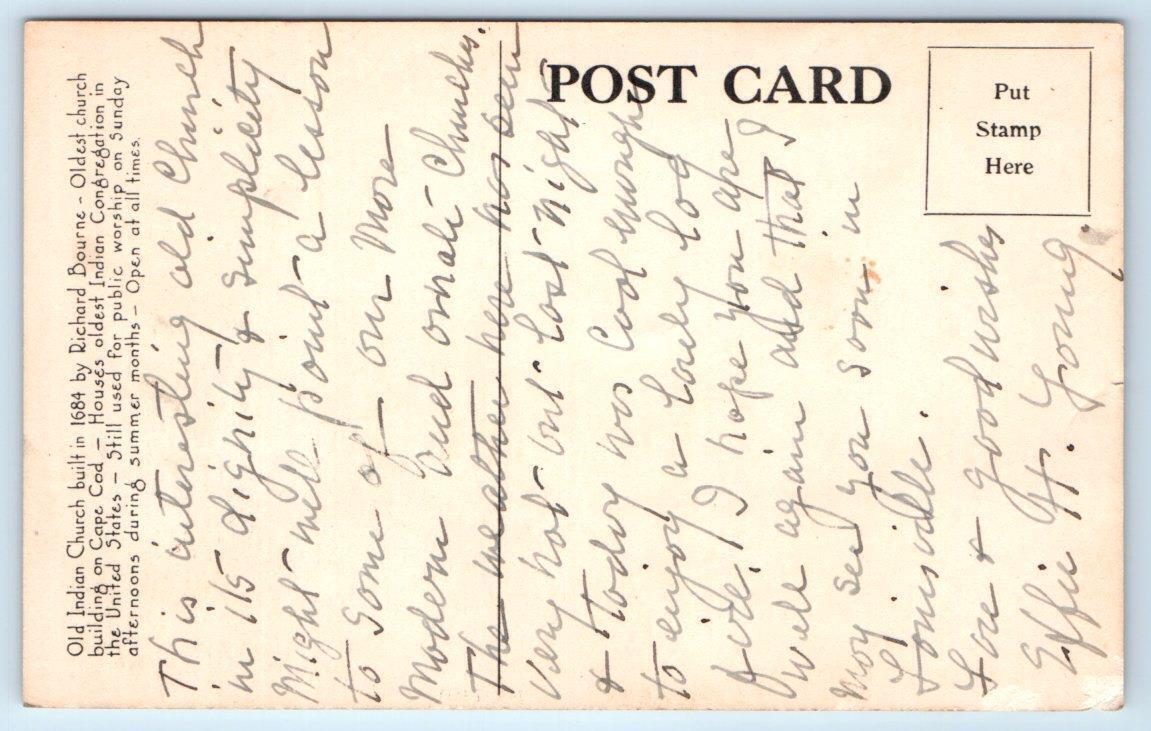 Old Indian Church built in 1684 by Richard Bourne - Oldest church
building on Cape Cod - Houses oldest Indian Congregation in
the United States - Still used for public worship on Sunday
afternoons during summer months - Open at all times.
POST CARD
Put
Stamp
Here
This interesting old Church
in its dignity & simplicity
Might well point a lesson
to some of our more
Modern and ornate Churches.
The weather here has been
very hot - but last night
& today was cool enough
to enjoy a lovely log
fire. I hope you are
well again and that I
may see you soon in
Louisville.
Love & good wishes
Effie H. Young.